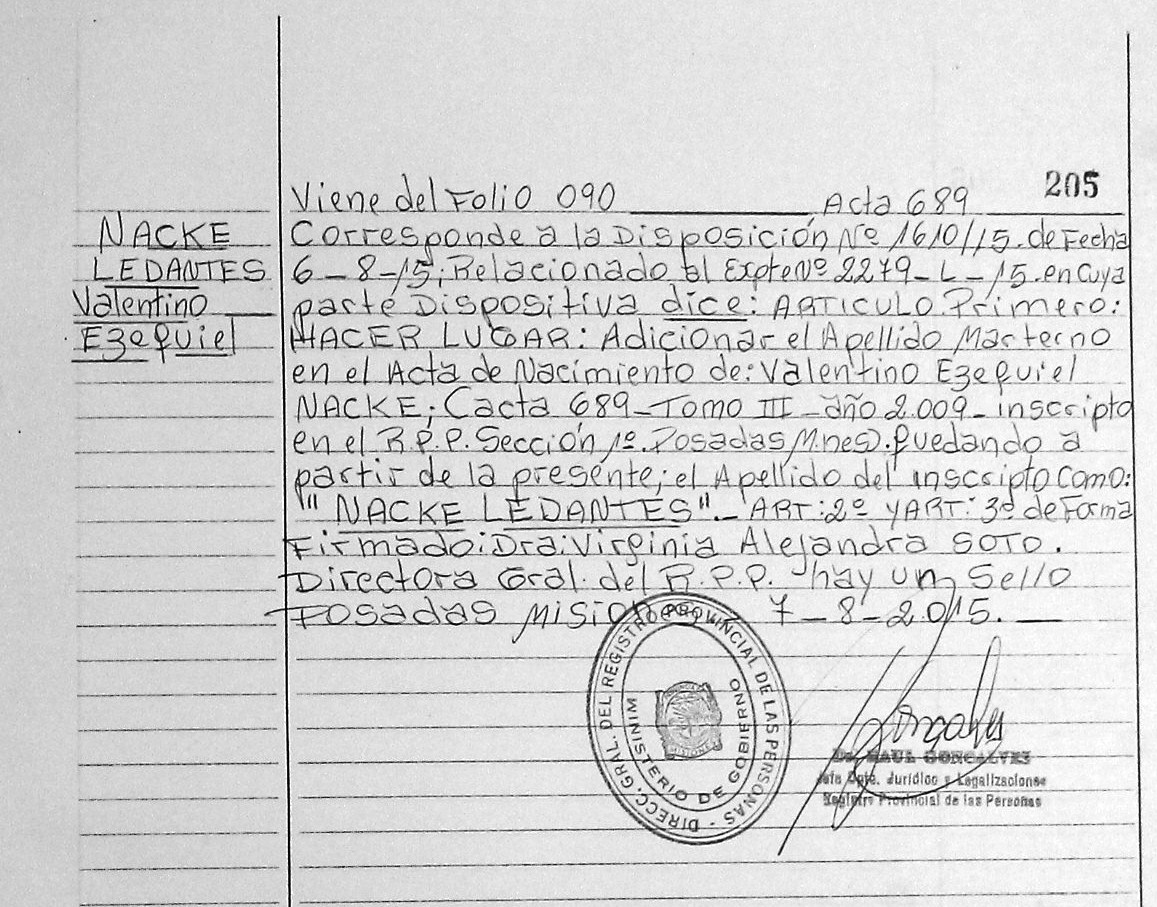 205
Viene del Folio 090 Acta 689
NACKE
LEDANTES
Valentino
Ezequiel
Corresponde a la Disposición Nº 1610/15. de Fecha
6-8-15; Relacionado al Expte Nº 2279-L-15. en cuya
parte Dispositiva dice: ARTICULO Primero:
HACER LUGAR: Adicionar el Apellido Materno
en el Acta de Nacimiento de: Valentino Ezequiel
NACKE; Cacta 689-Tomo III-año 2.009-inscripto
en el R.P.P. Sección 1º. Posadas Mnes). quedando a
partir de la presente; el Apellido del inscripto como:
"NACKE LEDANTES".- ART: 2º Y ART: 3º de Forma
Firmado: Dra: Virginia Alejandra SOTO.
Directora Gral. del R.P.P. - hay un Sello
Posadas 7-8-2.015.
DIRECC. GRAL. DEL REGISTRO PROVINCIAL DE LAS PERSONAS -
MINISTERIO DE GOBIERNO
MISIONES
Gonçalves
Dr. RAUL GONCALVES
Jefe Dpto. Jurídico y Legalizaciones
Registro Provincial de las Personas